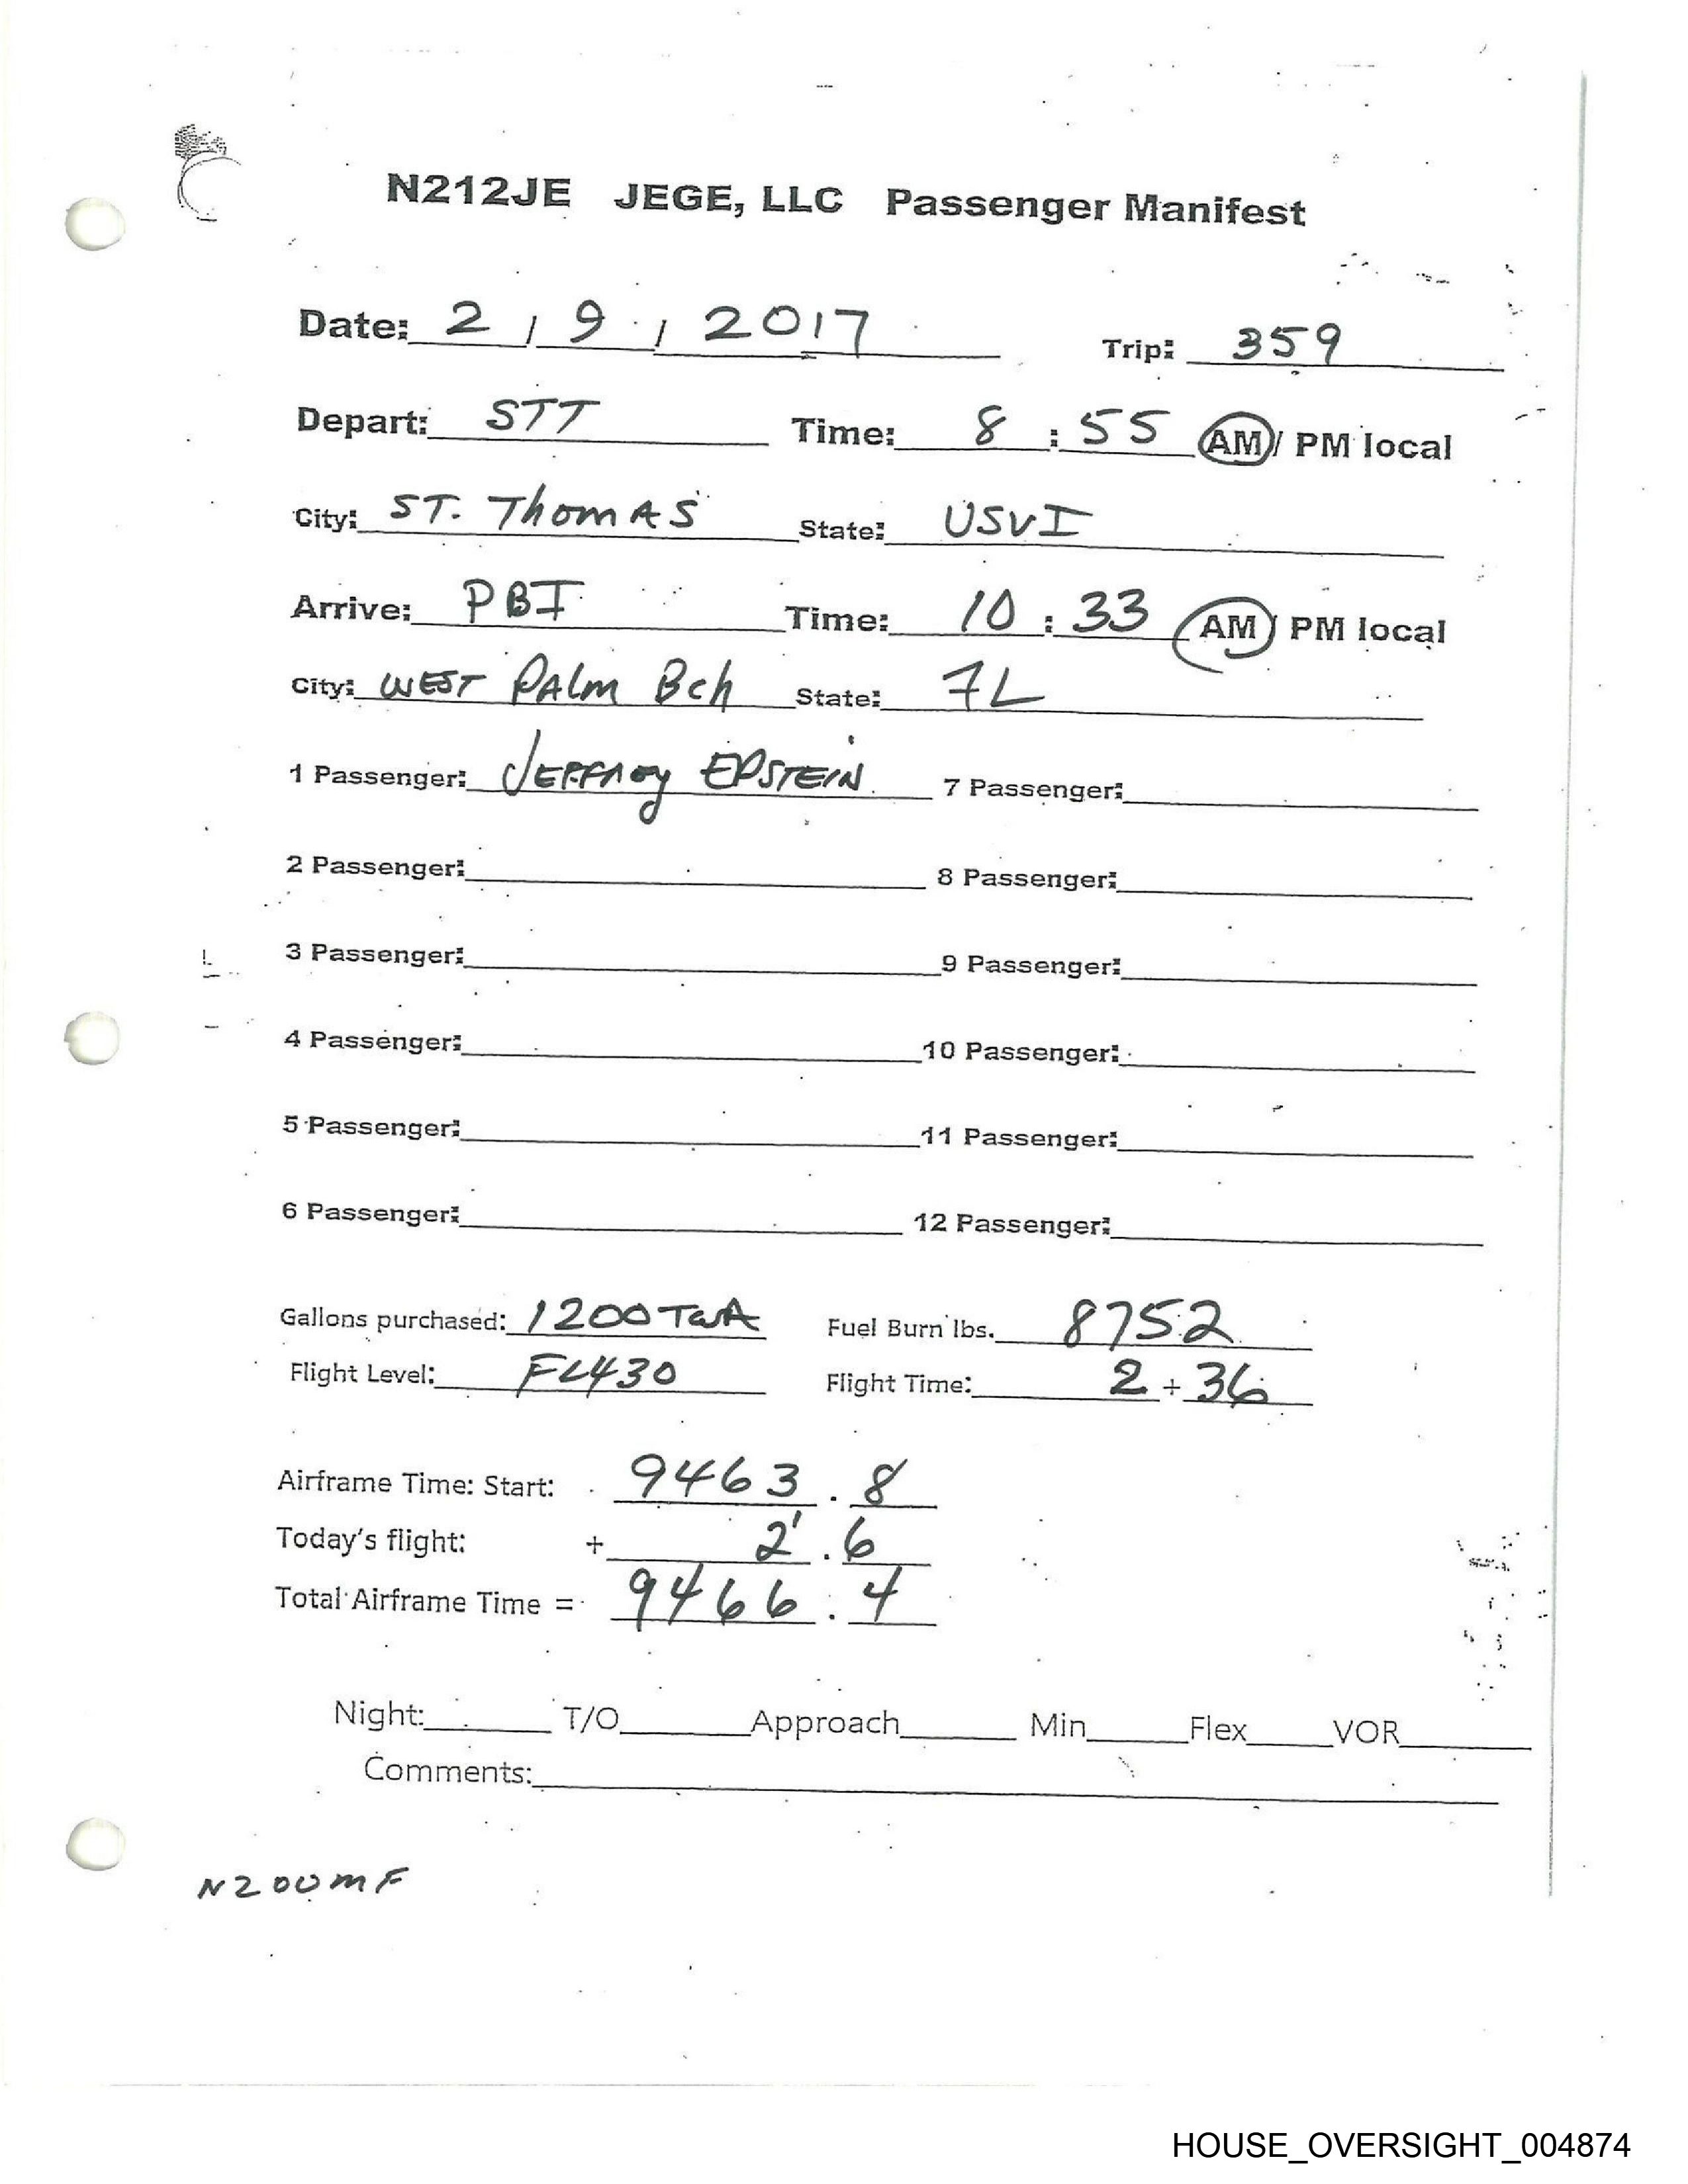 N212JE JEGE, LLC Passenger Manifest
Date: 2 / 9 / 2017 Trip: 359
Depart: STT Time: 8 : 55 AM / PM local
City: ST. ThomAS State: USVI
Arrive: PBI Time: 10 : 33 AM / PM local
City: WEST PAlm Bch State: FL
1 Passenger: JEFFREy EPSTEIN 7 Passenger:
2 Passenger: 8 Passenger:
3 Passenger: 9 Passenger:
4 Passenger: 10 Passenger:
5 Passenger: 11 Passenger:
6 Passenger: 12 Passenger:
Gallons purchased: 1200 Fuel Burn lbs. 8752
Flight Level: FL430 Flight Time: 2 + 36
Airframe Time: Start: 9463 . 8
Today's flight: + 2 . 6
Total Airframe Time = 9466 . 4
Night: T/O Approach Min Flex VOR
Comments:
N200mF
HOUSE_OVERSIGHT_004874